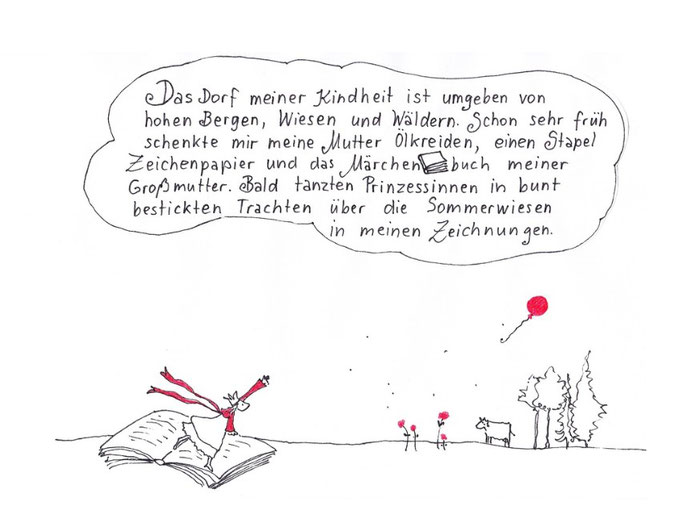 Das Dorf meiner Kindheit ist umgeben von
hohen Bergen, Wiesen und Wäldern. Schon sehr früh
schenkte mir meine Mutter Ölkreiden, einen Stapel
Zeichenpapier und das Märchenbuch meiner
Großmutter. Bald tanzten Prinzessinnen in bunt
bestickten Trachten über die Sommerwiesen
in meinen Zeichnungen.